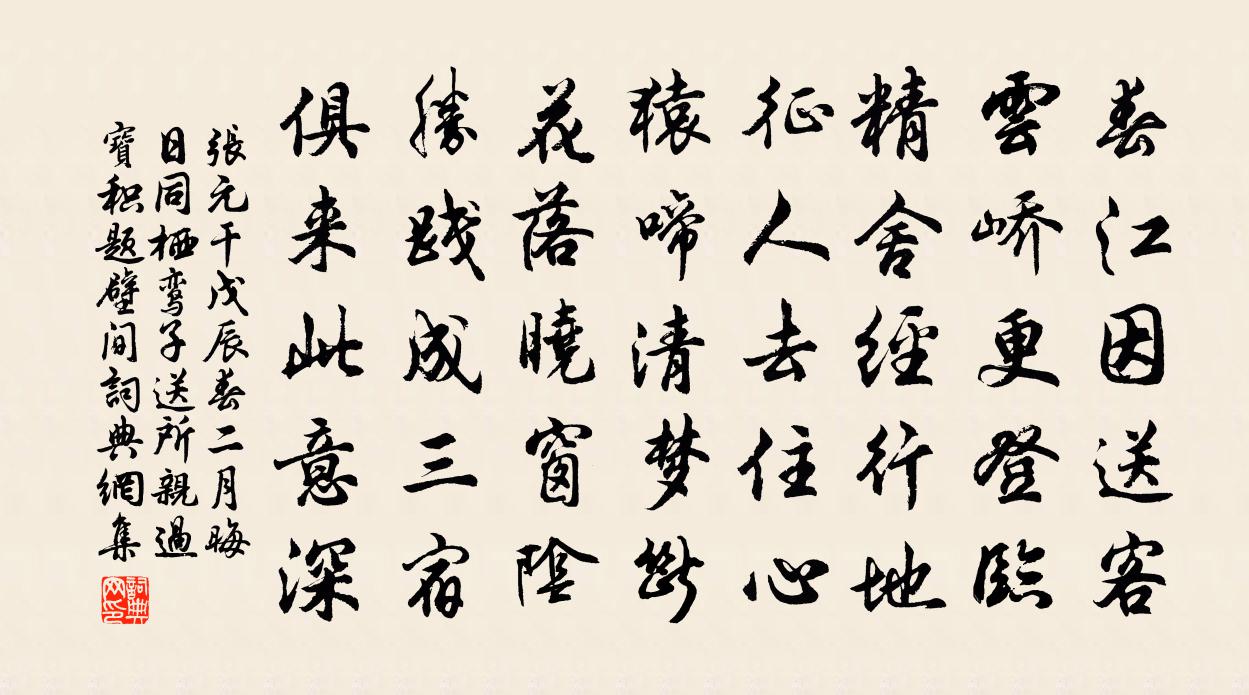 春江因送客
雲嶠更登臨
精舍經行地
征人去住心
猿啼清梦斷
花落曉窗陰
勝踐成三宿
俱来此意深
張元干戊辰春二月晦
日同栖鸾子送所親過
寶积题壁间詞典網集
詞典网印